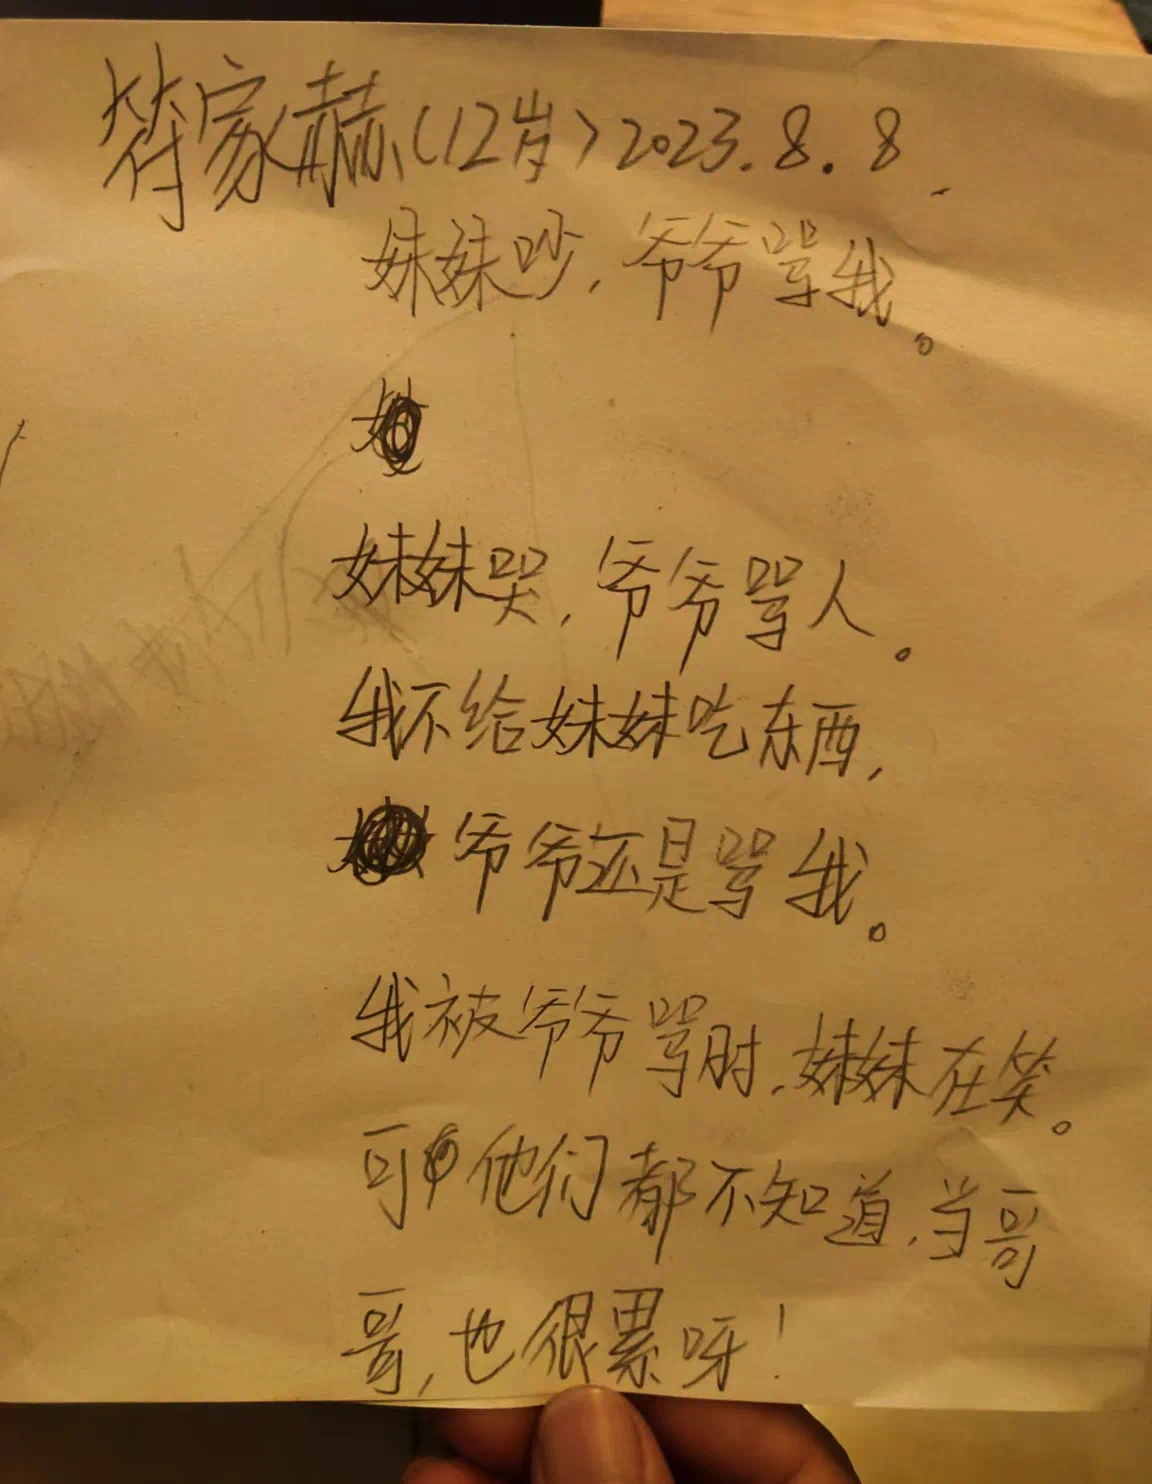 符家赫(12岁)2023.8.8.
妹妹吵,爷爷骂我。
妹妹哭,爷爷骂人。
我不给妹妹吃东西,
爷爷还是骂我。
我被爷爷骂时,妹妹在笑。
可他们都不知道,当哥
哥,也很累呀!